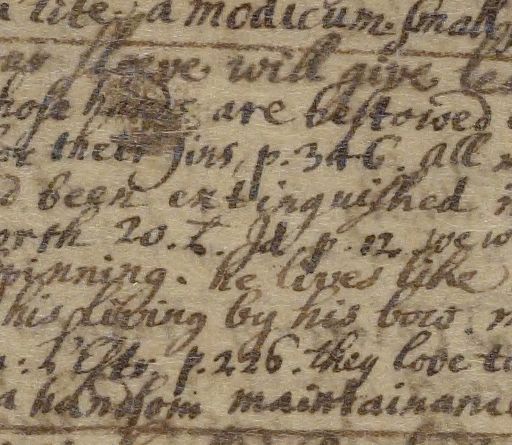 life. a modicum. small
sleeve will give
hose hands are bestowed
for their sins, p. 346. all
been extinguished
orth 20. t. Id. p. 12. we w
pinning. he lives like
his living by his bow.
: L'Estr. p. 226. they love to
a handsom maintainanc